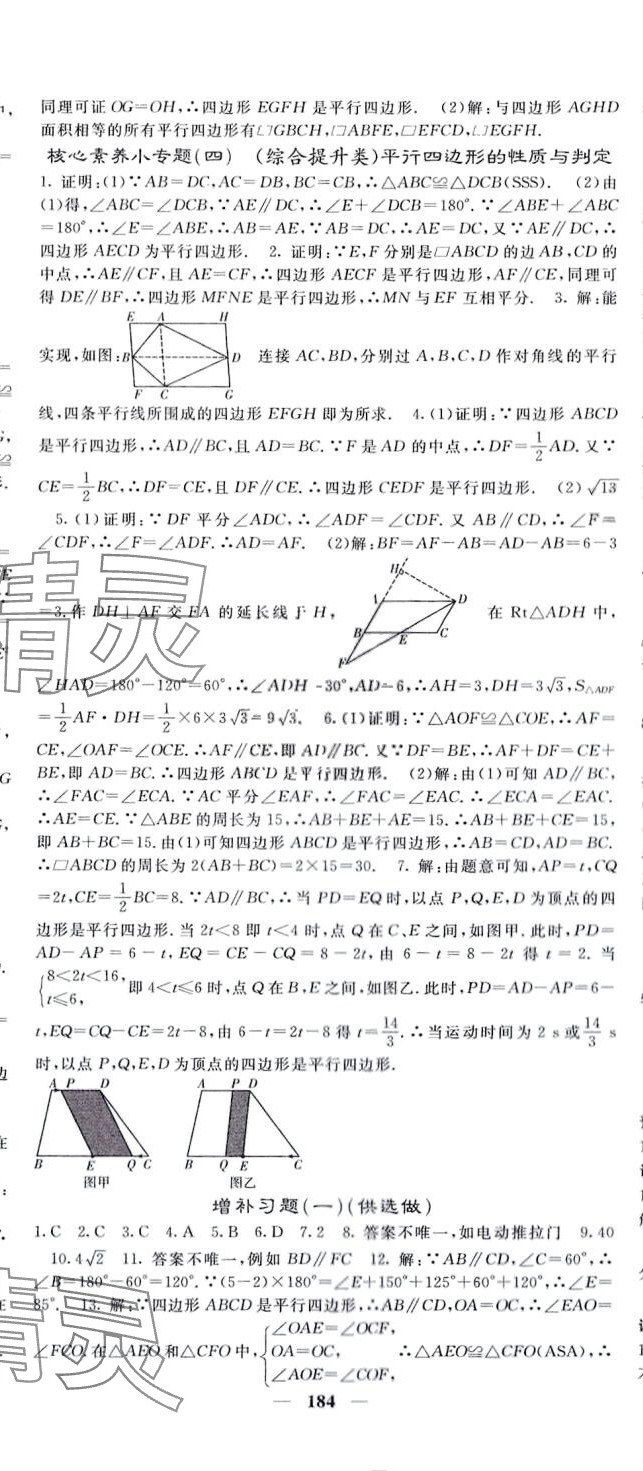 同理可证 OG=OH,∴四边形 EGFH 是平行四边形. (2)解:与四边形 AGHD
面积相等的所有平行四边形有▱GBCH,▱ABFE,▱EFCD,▱EGFH.
核心素养小专题(四) (综合提升类)平行四边形的性质与判定
1. 证明:(1)∵AB=DC,AC=DB,BC=CB,∴△ABC≌△DCB(SSS). (2)由
(1)得,∠ABC=∠DCB,∵AE∥DC,∴∠E+∠DCB=180°.∵∠ABE+∠ABC
=180°,∴∠E=∠ABE,∴AB=AE,∵AB=DC,∴AE=DC,又∵AE∥DC,∴
四边形 AECD 为平行四边形. 2. 证明:∵E,F 分别是▱ABCD 的边 AB,CD 的
中点,∴AE∥CF,且 AE=CF,∴四边形 AECF 是平行四边形,AF∥CE,同理可
得 DE∥BF,∴四边形 MFNE 是平行四边形,∴MN 与 EF 互相平分. 3. 解:能
E A H
实现,如图: B D 连接 AC,BD,分别过 A,B,C,D 作对角线的平行
F C G
线,四条平行线所围成的四边形 EFGH 即为所求. 4.(1)证明:∵四边形 ABCD
是平行四边形,∴AD∥BC,且 AD=BC.∵F 是 AD 的中点,∴DF=1/2 AD. 又∵
CE=1/2 BC,∴DF=CE,且 DF∥CE.∴四边形 CEDF 是平行四边形. (2)√13
5.(1)证明:∵DF 平分∠ADC,∴∠ADF=∠CDF. 又 AB∥CD,∴∠F=
∠CDF,∴∠F=∠ADF.∴AD=AF. (2)解:BF=AF-AB=AD-AB=6-3
H
A D
=3.作 DH⊥AF 交 FA 的延长线于 H, 在 Rt△ADH 中,
B E C
F
∠HAD=180°-120°=60°,∴∠ADH=30°,AD=6,∴AH=3,DH=3√3,S△ADF
=1/2 AF·DH=1/2×6×3√3=9√3. 6.(1)证明:∵△AOF≌△COE,∴AF=
CE,∠OAF=∠OCE.∴AF∥CE,即 AD∥BC. 又∵DF=BE,∴AF+DF=CE+
BE,即 AD=BC.∴四边形 ABCD 是平行四边形. (2)解:由(1)可知 AD∥BC,
∴∠FAC=∠ECA.∵AC 平分∠EAF,∴∠FAC=∠EAC.∴∠ECA=∠EAC.
∴AE=CE.∵△ABE 的周长为 15,∴AB+BE+AE=15.∴AB+BE+CE=15,
即 AB+BC=15.由(1)可知四边形 ABCD 是平行四边形,∴AB=CD,AD=BC.
∴▱ABCD 的周长为 2(AB+BC)=2×15=30. 7. 解:由题意可知,AP=t,CQ
=2t,CE=1/2 BC=8.∵AD∥BC,∴当 PD=EQ 时,以点 P,Q,E,D 为顶点的四
边形是平行四边形. 当 2t<8 即 t<4 时,点 Q 在 C、E 之间,如图甲. 此时,PD=
AD-AP=6-t,EQ=CE-CQ=8-2t,由 6-t=8-2t 得 t=2. 当
{8<2t<16,
t≤6, 即 4<t≤6 时,点 Q 在 B,E 之间,如图乙. 此时,PD=AD-AP=6-
t,EQ=CQ-CE=2t-8,由 6-t=2t-8 得 t=14/3.∴当运动时间为 2 s 或 14/3 s
时,以点 P,Q,E,D 为顶点的四边形是平行四边形.
A P D A P D
B E Q C B Q E C
图甲 图乙
增补习题(一)(供选做)
1.C 2.C 3.C 4.A 5.B 6.D 7.2 8. 答案不唯一,如电动推拉门 9.40
10.4√2 11. 答案不唯一,例如 BD∥FC 12. 解:∵AB∥CD,∠C=60°,∴
∠B=180°-60°=120°.∵(5-2)×180°=∠E+150°+125°+60°+120°,∴∠E=
85°. 13. 解:∵四边形 ABCD 是平行四边形,∴AB∥CD,OA=OC,∴∠EAO=
∠FCO. 在△AEO 和△CFO 中,{∠OAE=∠OCF,
OA=OC,
∠AOE=∠COF, ∴△AEO≌△CFO(ASA),∴
184
精灵
精灵